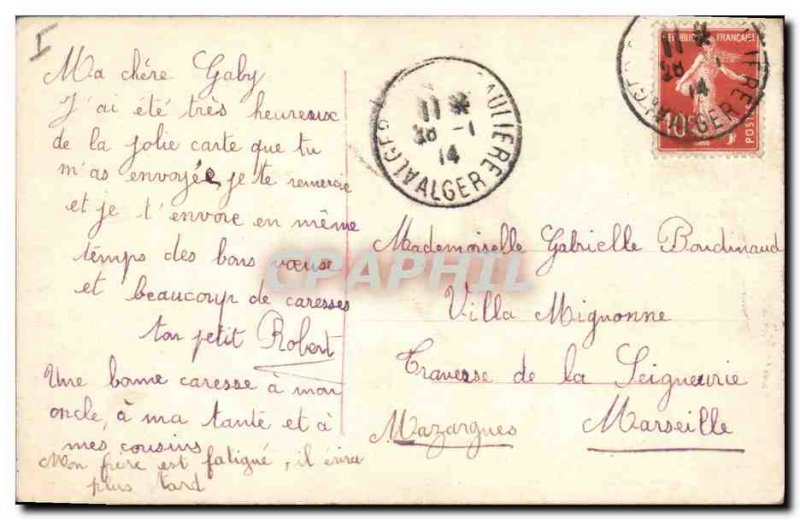 I
Ma chère Gaby
J'ai été très heureux
de la jolie carte que tu
m'as envoyée je te remercie
et je t'envoie en même
temps des bons vœuse
et beaucoup de caresses
ton petit Robert
Une bonne caresse à mon
oncle, à ma tante et à
mes cousins
Mon frère est fatigué, il érira
plus tard
AULIERE
11 *
28 -1
14
ALGER
REPUBLIQUE FRANÇAISE
10c
POSTES
11 *
28 -1
14
ALGER
Mademoiselle Gabrielle Boudinaud
Villa Mignonne
Traverse de la Seigneurie
Mazargues Marseille
CPAPHIL